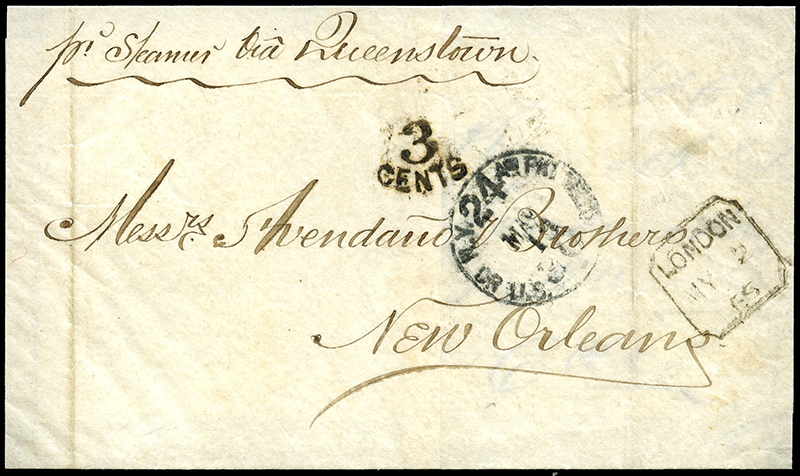 pr. Steamer Via Queenstown.
3
CENTS
N.Y. 24 AM PKT
MAY
OR U.S.
Messrs. Avendaño Brothers
LONDON
MY 2
65
New Orleans